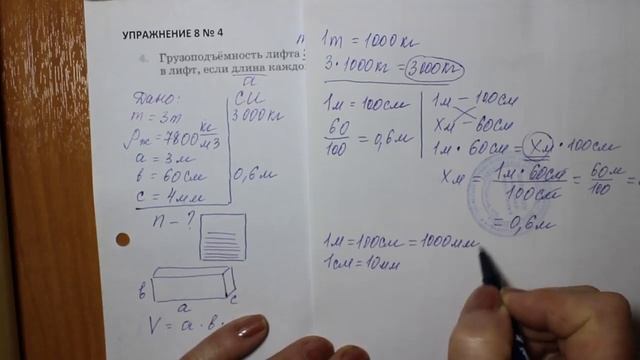 УПРАЖНЕНИЕ 8 № 4
4. Грузоподъёмность лифта
в лифт, если длина каждо
Дано:
СИ
m = 3т
3000 кг
ρж = 7800 кг/м3
a = 3 м
в = 60 см
0,6 м
с = 4 мм
n - ?
в
a
с
V = a · в ·
1т = 1000 кг
3 · 1000 кг = 3000 кг
1 м = 100 см
60/100 = 0,6 м
1м - 100 см
Xм - 60 см
1м · 60 см = Xм · 100 см
Xм = 1м · 60 см/100 см = 60 м/100 =
= 0,6 м
1м = 100 см = 1000 мм
1 см = 10 мм